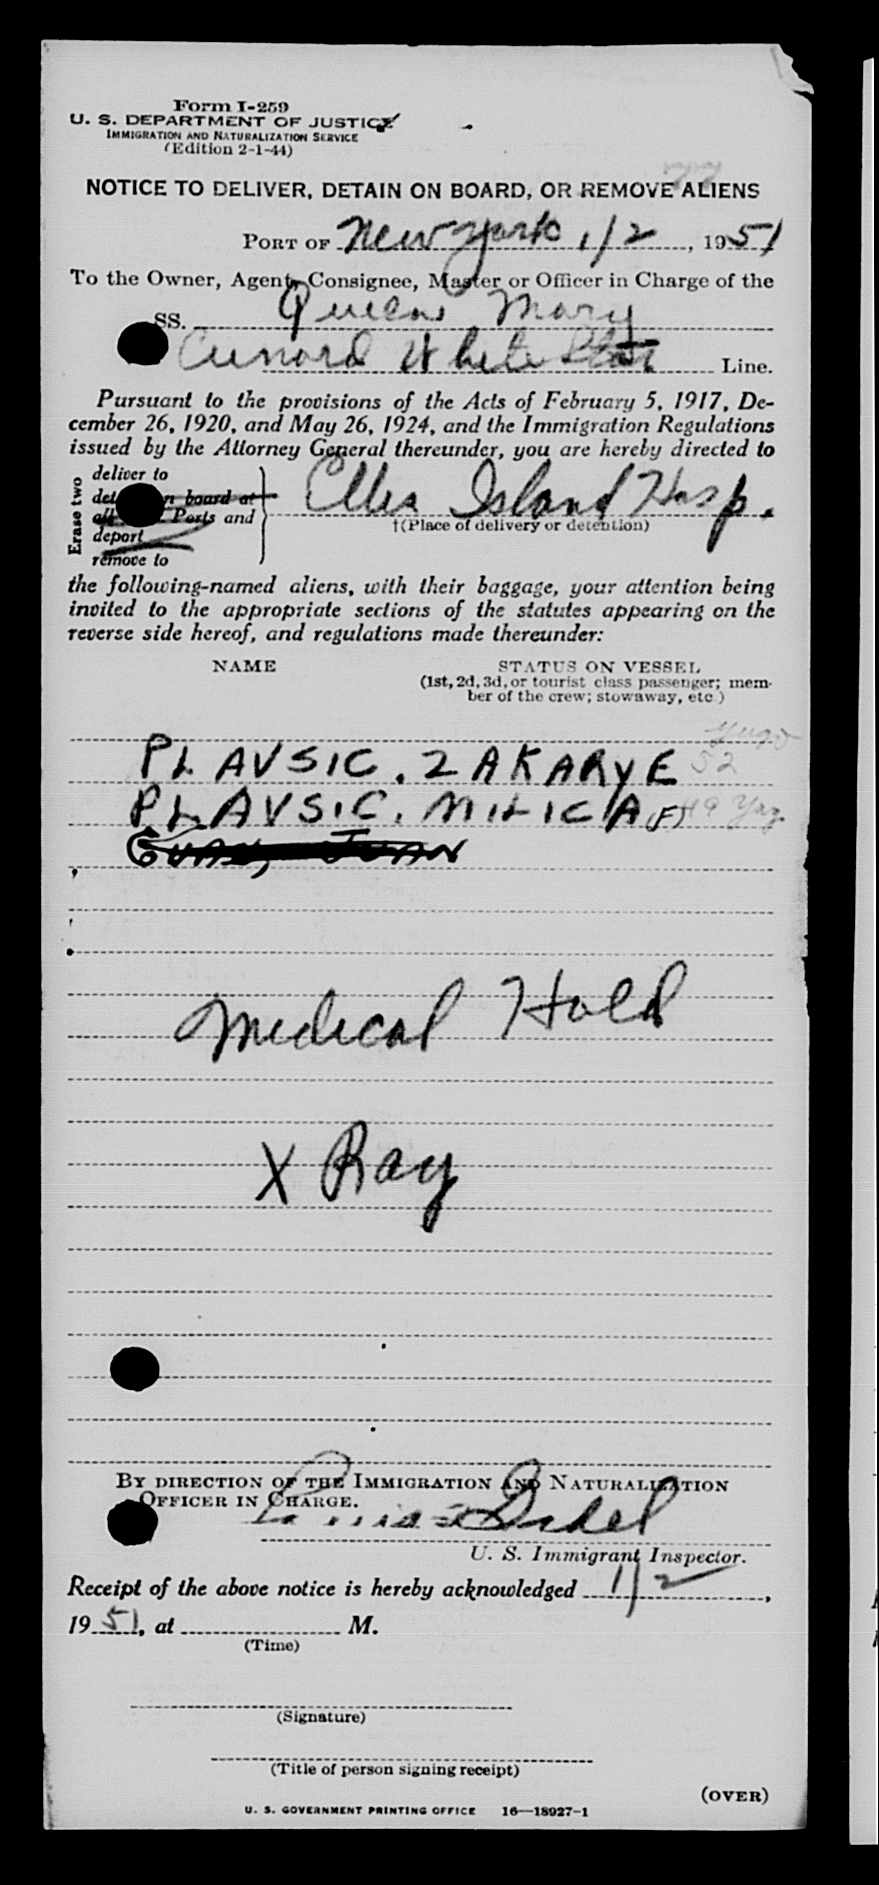 Form I-259
U. S. DEPARTMENT OF JUSTICE
IMMIGRATION AND NATURALIZATION SERVICE
(Edition 2-1-44)
77
NOTICE TO DELIVER, DETAIN ON BOARD, OR REMOVE ALIENS
PORT OF New York 1/2, 1951
To the Owner, Agent, Consignee, Master or Officer in Charge of the
SS. Queen Mary
Cunard White Star Line.
Pursuant to the provisions of the Acts of February 5, 1917, De-
cember 26, 1920, and May 26, 1924, and the Immigration Regulations
issued by the Attorney General thereunder, you are hereby directed to
Erase two
deliver to
on board at
Ports and
deport
remove to
Ellis Island Hosp.
†(Place of delivery or detention)
the following-named aliens, with their baggage, your attention being
invited to the appropriate sections of the statutes appearing on the
reverse side hereof, and regulations made thereunder:
NAME STATUS ON VESSEL
(1st, 2d, 3d, or tourist class passenger; mem-
ber of the crew; stowaway, etc.)
Yugo
PLAVSIC, ZAKARYE 52
PLAVSIC, MILICA (F) 49 Yug.
JUAN
Medical Hold
X Ray
BY DIRECTION OF THE IMMIGRATION AND NATURALIZATION
OFFICER IN CHARGE.
U. S. Immigrant Inspector.
Receipt of the above notice is hereby acknowledged 1/2,
1951, at M.
(Time)
(Signature)
(Title of person signing receipt)
(OVER)
U. S. GOVERNMENT PRINTING OFFICE 16—18927-1